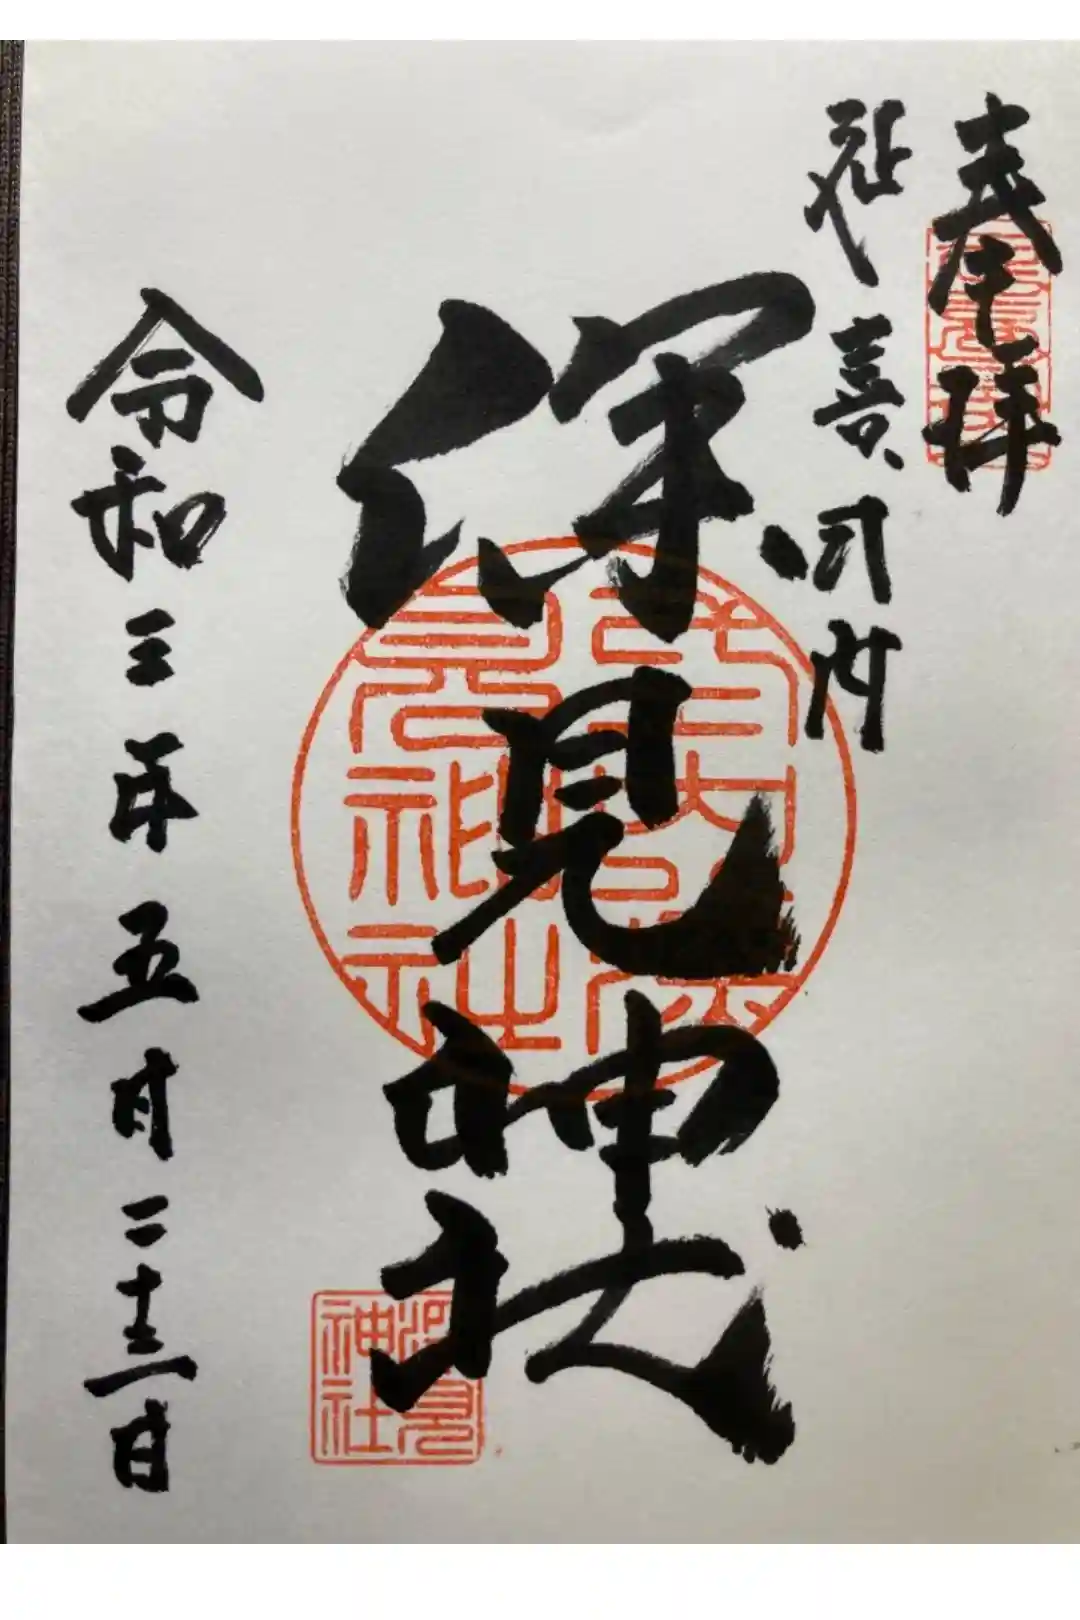 奉拝
延喜式内
深見神社
令和三年五月二十三日
深見神社